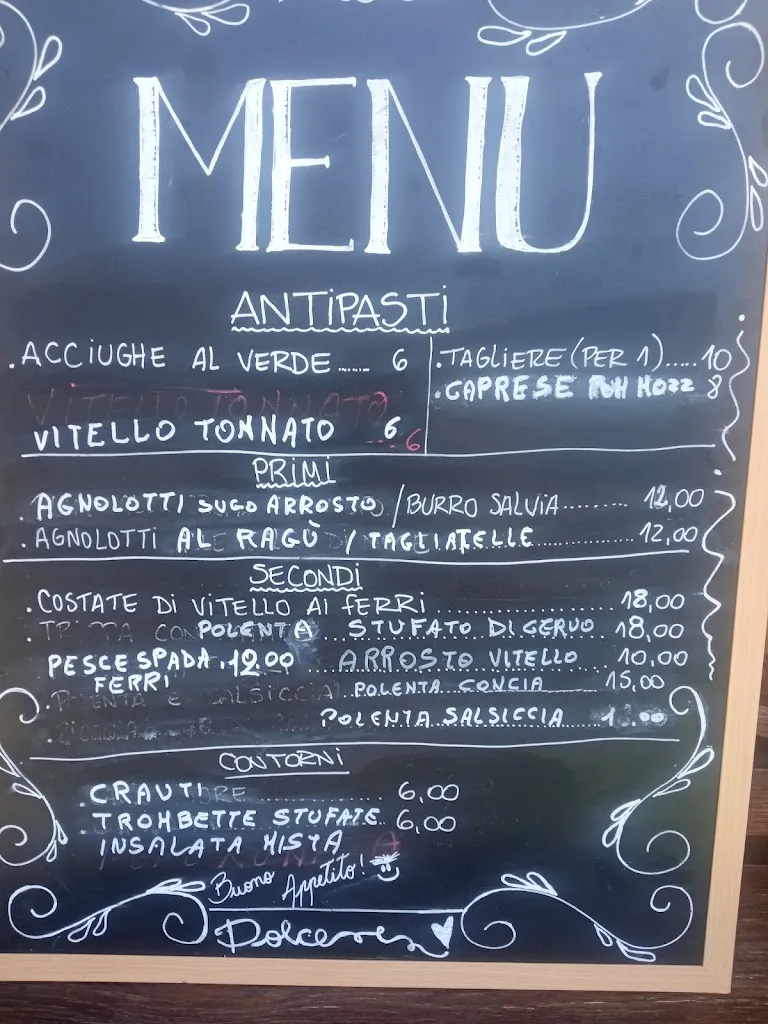 MENU
ANTIPASTI
.ACCIUGHE AL VERDE...... 6
VITELLO TONNATO
VITELLO TONNATO 6
...6
.TAGLIERE (PER 1).....10
.CAPRESE POM MOZZ 8
PRIMI
.AGNOLOTTI SUGO ARROSTO / BURRO SALVIA......... 12,00
.AGNOLOTTI AL RAGÙ / TAGLIATELLE............... 12,00
SECONDI
.COSTATE DI VITELLO AI FERRI...................... 18,00
POLENTA...STUFATO DI CERVO 18,00
PESCE SPADA.12.00 ....ARROSTO VITELLO 10,00
FERRI
POLENTA CONCIA 15,00
POLENTA SALSICCIA
CONTORNI
.CRAUTI.................. 6,00
.TROMBETTE STUFATE.. 6,00
INSALATA MISTA
Buono Appetito!